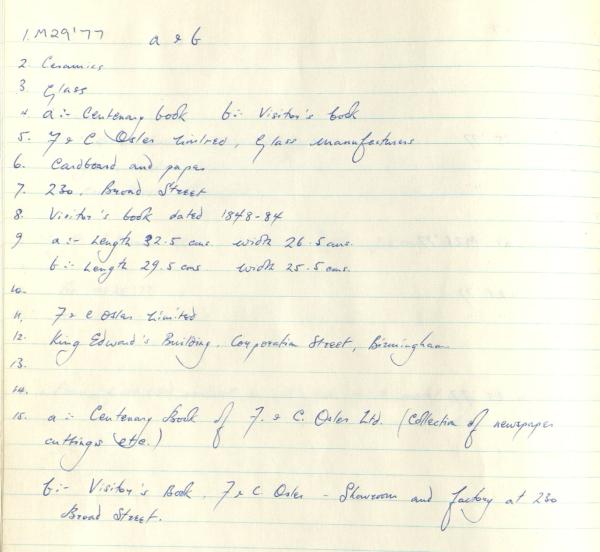 1. M29'77 a & b
2. Ceramics
3. Glass
4. a :- Centenary book b :- Visitor's book
5. F & C Osler Limited, Glass manufacturers
6. Cardboard and paper
7. 230, Broad Street
8. Visitor's book dated 1848-84
9 a :- Length 32.5 cms. width 26.5 cms.
b :- Length 29.5 cms width 25.5 cms.
10.
11. F & C Osler Limited
12. King Edward's Building, Corporation Street, Birmingham
13.
14.
15. a :- Centenary Book of F. & C. Osler Ltd. (Collection of newspaper
cuttings etc.)
b :- Visitor's Book. F & C Osler - Showroom and factory at 230
Broad Street.